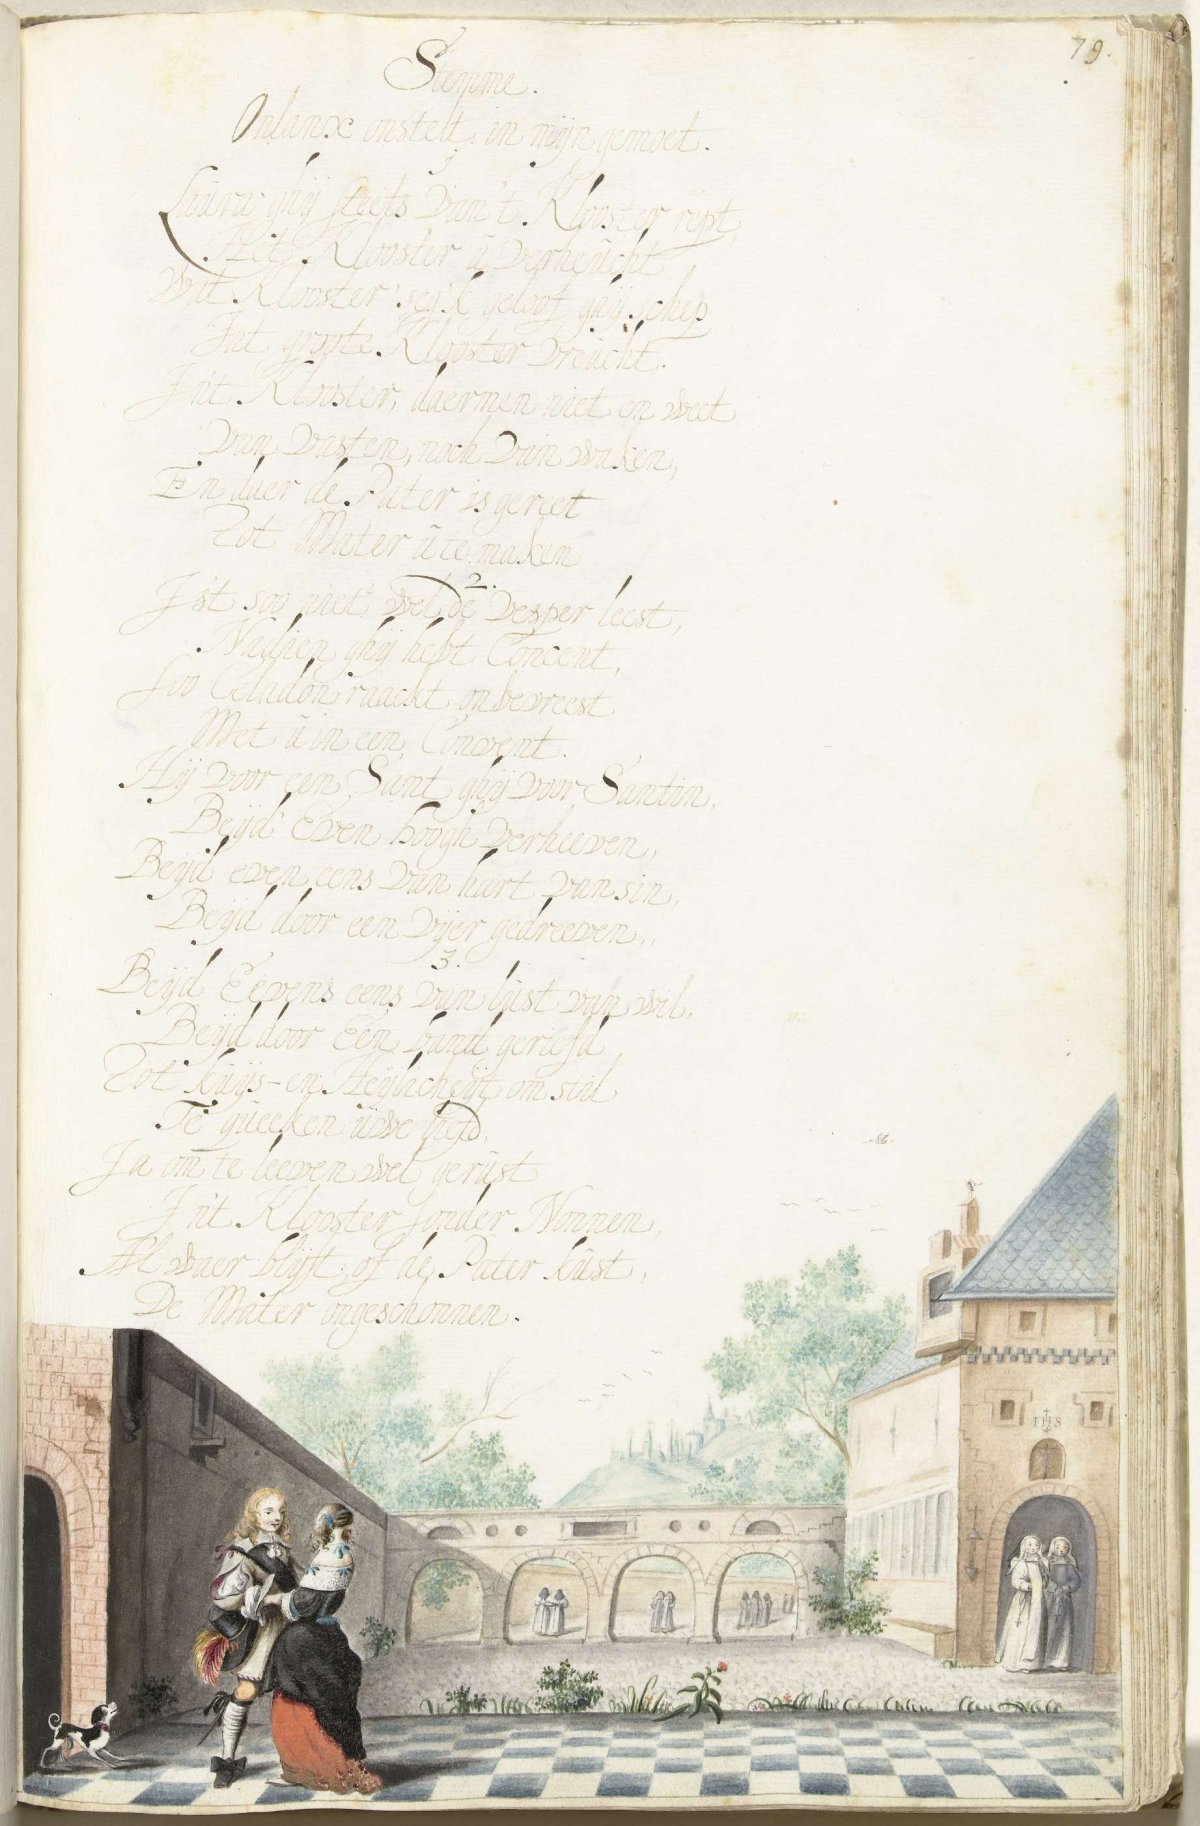 79.
Stemme.
Onlanx onstelt in mijn gemoet.
1
Laura ghij steets van 't Klooster rept,
Het Klooster û verheûcht
Wat Klooster' seg 'k geloof ghij schep
In't groote Klooster vreûcht.
In't Klooster, daermen niet en weet
Van vasten, noch van waken,
En daer de Pater is gereet
Tot Mater û te maken
2.
Is't soo niet? wel de vesper leest,
Nadien ghij hebt Concent,
Soo Celadon raackt onbevreest
Met û in een Convent.
Hij voor een Sant ghij voor Santin,
Beijd' Even hoogh verheeven,
Beijd even eens van hart van sin,
Beijd door een vijer gedreeven,
3.
Beijd Eevens eens van lûst van wil,
Beijd door Een band geriefd
Tot kûijs-en Heijlicheijt om stil
Te qûeeken ûwe liefd,
Ja om te leeven wel gerûst
In't Klooster sonder Nonnen,
Al waer blijft, of de Pater kûst,
De Mater ongeschonnen.
IHS